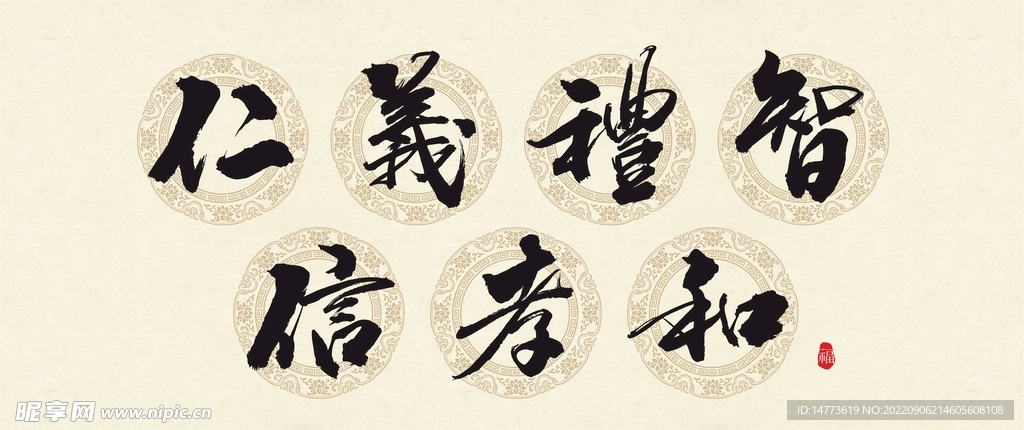 仁義禮智
信孝和
福
昵享网 www.nipic.cn
ID:14773619 NO:20220906214605608108